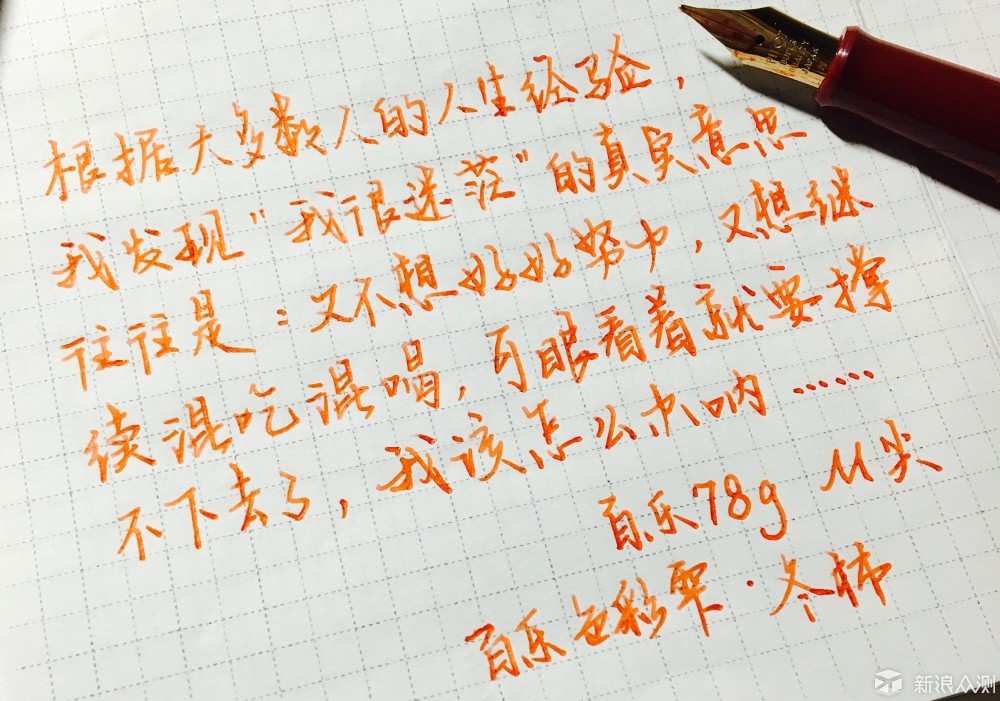 根据大多数人的人生经验，
我发现“我很迷茫”的真实意思
往往是：又不想好好努力，又想继
续混吃混喝，可眼看着就要撑
不下去了，我该怎么办呐……
百乐78g M尖
百乐色彩雫·冬柿
新浪众测